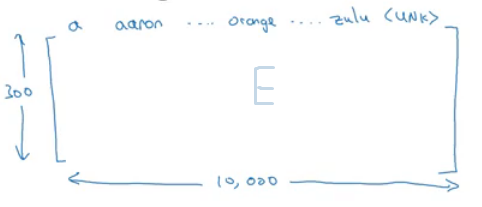 a aaron .... orange .... zulu <UNK>
E
300
10,000